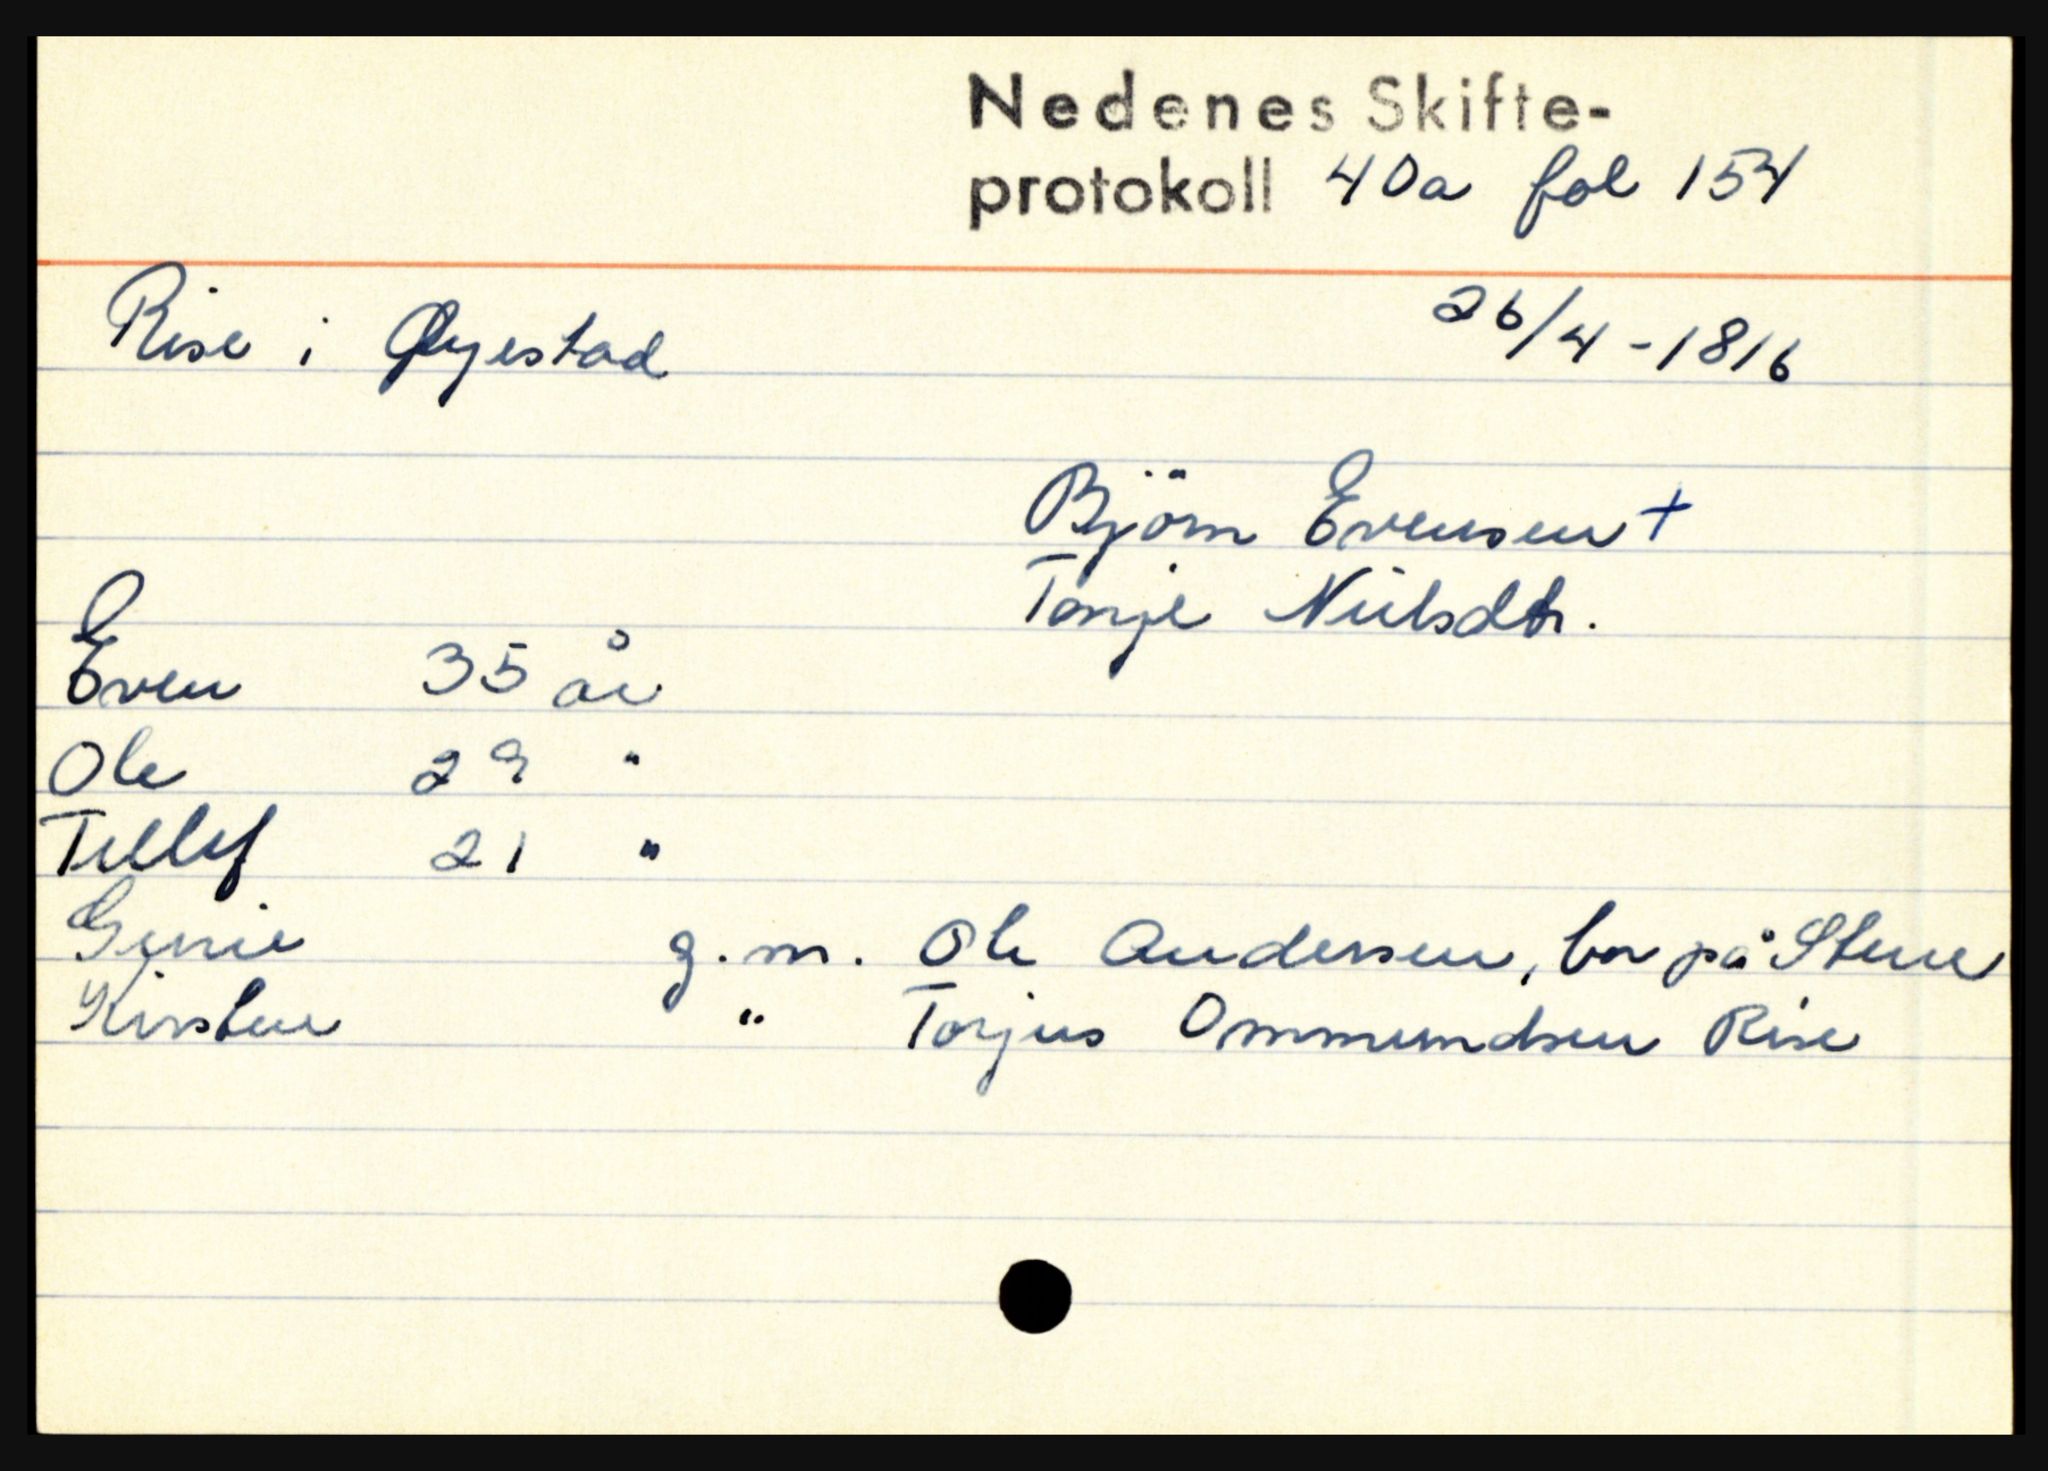 Nedenes Skifte-
protokoll 40a fol 154
Rise i Øyestad 26/4-1816
Björn Evensen +
Tonje Nielsdtr.
Even 35 år
Ole 29 "
Tellef 21 "
Gurie g.m. Ole Andersen, bor på Stene
Kirsten " Torjus Ommundsen Rise